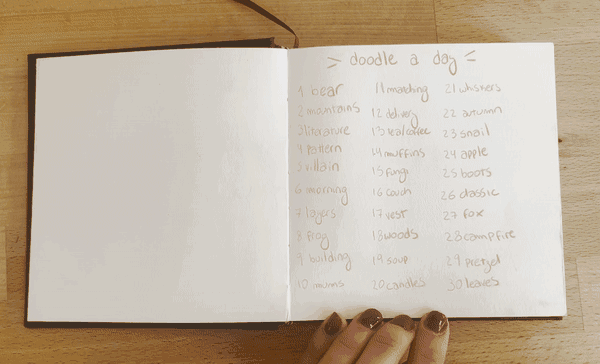 doodle a day
1 bear
2 mountains
3 literature
4 pattern
5 villain
6 morning
7 layers
8 frog
9 building
10 mums
11 matching
12 delivery
13 tea/coffee
14 muffins
15 fungi
16 couch
17 vest
18 woods
19 soup
20 candles
21 whiskers
22 autumn
23 snail
24 apple
25 boots
26 classic
27 fox
28 campfire
29 pretzel
30 leaves